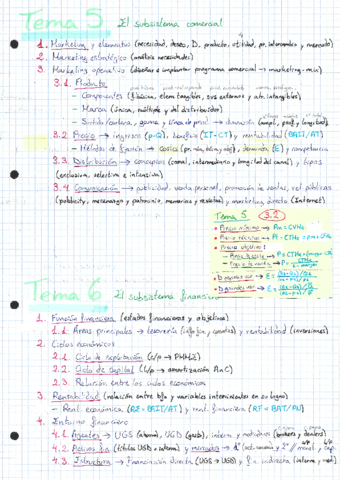 Tema 5 El subsistema comercial
1. Marketing y elementos (necesidad, deseo, D, producto, utilidad, pr, intercambio y mercado)
2. Marketing estratégico (análisis necesidades)
3. Marketing operativo (diseñar e implantar programa comercial → marketing-mix)
3.1. Producto
- Componentes (físicos, elem tangibles, sus externos y atr. intangibles)
- Marca (única, múltiple y del distribuidor)
- Surtido/cartera, gama y línea de prod → dimensión (ampl, prof y longitud)
3.2. Precio → ingresos (p·Q), beneficio (IT-CT) y rentabilidad (BAII/AT)
- Métodos de fijación → costes, demanda (E) y competencia
3.3. Distribución → conceptos (canal, intermediario y longitud del canal) y tipos
(exclusiva, selectiva e intensiva)
3.4. Comunicación → publicidad, venta personal, promoción de ventas, rel. públicas
(publicity, mecenazgo y patrocinio, memorias y revistas) y marketing directo (Internet)
Tema 5 3.2
• Precio mínimo → Pm = CVMe
• Precio técnico → Pt = CTMe
• Precio objetivo:
Tema 6 El subsistema financiero
1. Función financiera (estados financieros y objetivos)
1.1. Áreas principales → tesorería y rentabilidad (inversiones)
2. Ciclos económicos
2.1. Ciclo de explotación (c/p → PMME)
2.2. Ciclo de capital (l/p → amortización AnC)
2.3. Relación entre los ciclos económicos
3. Rentabilidad (relación entre bfo y variables intervinientes en su logro)
- Rent. económica (RE = BAIT/AT) y rent. financiera (RF = BAT/PN)
4. Entorno financiero
4.1. Agentes → UGS (ahorro), UGD (gasto), interm y mediadores (brokers y dealers)
4.2. Activos fin (títulos UGD → ahorro) y mercados →
4.3. Estructura → financiación directa (UGS → UGD) y f. indirecta (interm. y med.)